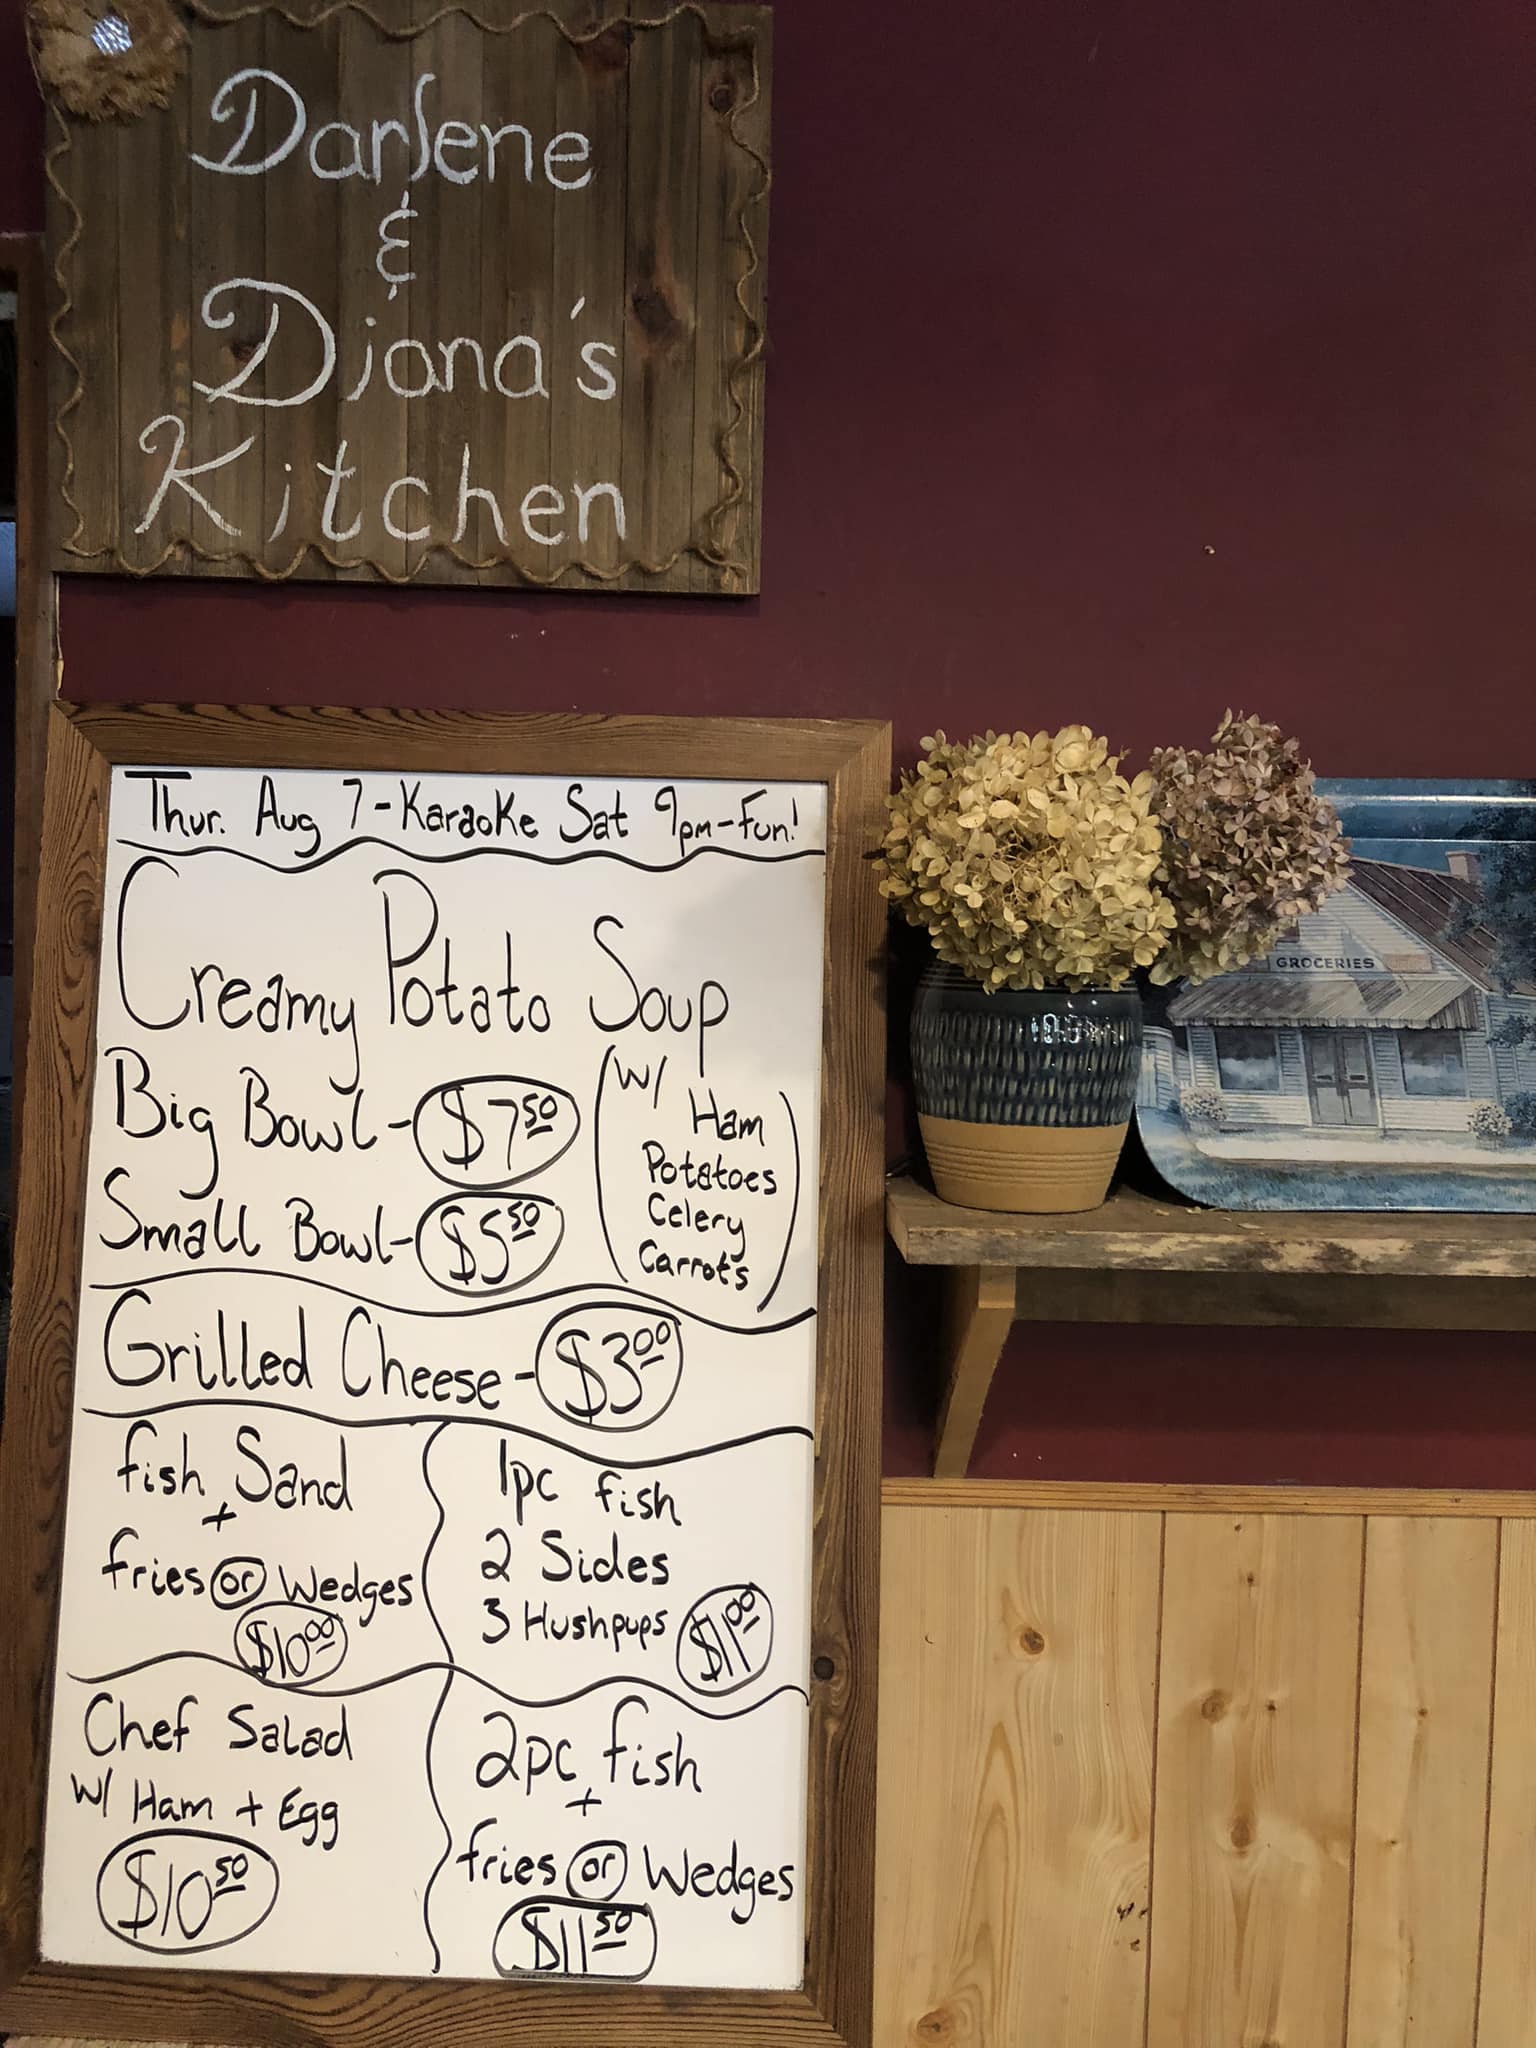 Darlene
&
Diana's
Kitchen
Thur. Aug 7-Karaoke Sat 9pm-Fun!
Creamy Potato Soup
Big Bowl-$7.50
Small Bowl-$5.50
(W/
Ham
Potatoes
Celery
Carrots)
Grilled Cheese-$3.00
fish Sand
+
fries or Wedges
$10.00
1pc fish
2 Sides
3 Hushpups $11.00
Chef Salad
W/ Ham + Egg
$10.50
2pc fish
+
fries or Wedges
$11.50
GROCERIES